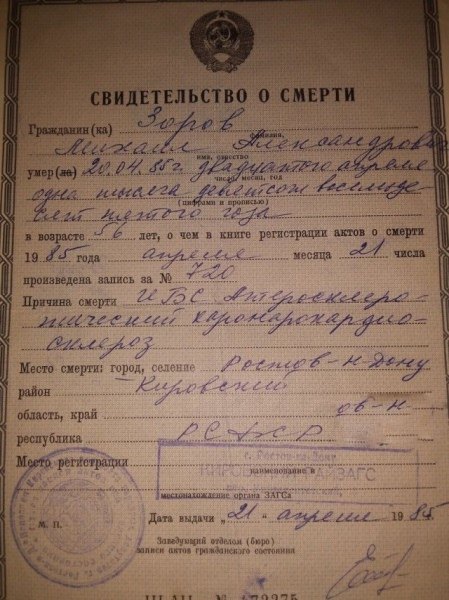 СВИДЕТЕЛЬСТВО О СМЕРТИ
Гражданин(ка) Зоров
фамилия,
Михаил Александрович
имя, отчество
умер(ла) 20.04.85г. двадцатого апреля
число, месяц, год
одна тысяча девятсот восемьде
сят пятого года
(цифрами и прописью)
в возрасте 56 лет, о чем в книге регистрации актов о смерти
1985 года апреля месяца 21 числа
произведена запись за № 720
Причина смерти ИБС Атеросклеро-
тический коронарокардио-
склероз
Место смерти: город, селение Ростов-н-Дону
район Кировский
область, край об-н
республика РСФСР
г. Ростов-на-Дону
Место регистрации РАЙЗАГС
наименование и
местонахождение органа ЗАГСа
Дата выдачи „21“ апреля 1985
М. П.
Заведующий отделом (бюро)
записи актов гражданского состояния